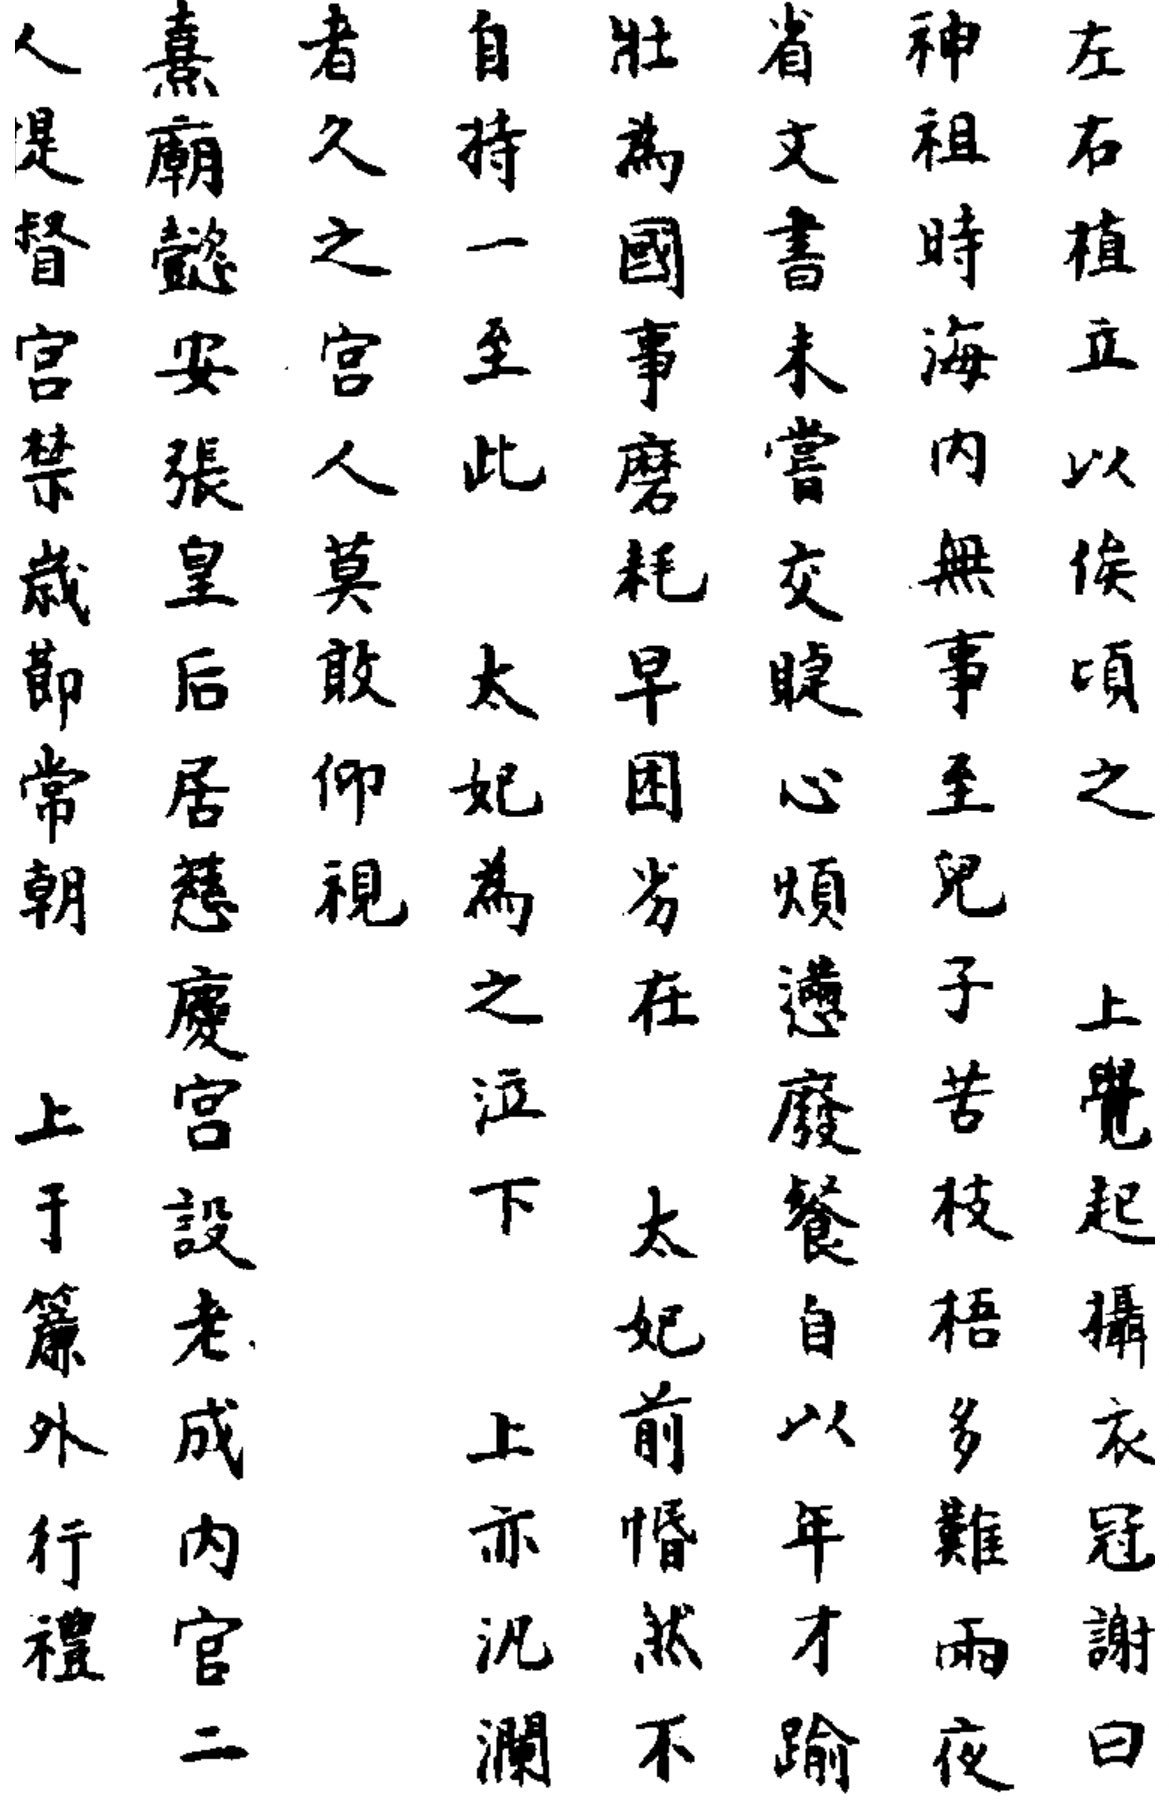 左右植立以俟頃之　上覺起攝衣冠謝曰
神祖時海内無事至兒子苦枝梧多難兩夜
省文書未嘗交睫心煩懣廢餐自以年才踰
壯為國事磨耗早困劣在　太妃前惛然不
自持一至此　太妃為之泣下　上亦汍瀾
者久之宮人莫敢仰視
熹廟懿安張皇后居慈慶宮設老成内官二
人提督宮禁歲節常朝　上于簾外行禮